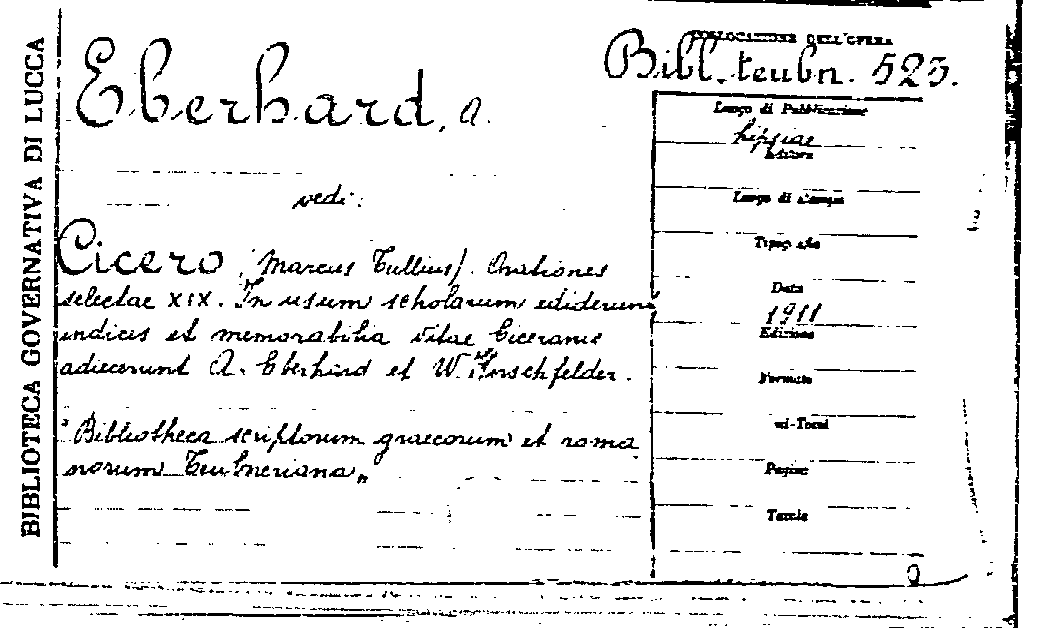 BIBLIOTECA GOVERNATIVA DI LUCCA
Eberhard, A.
vedi:
Cicero (Marcus Tullius). Orationes
selectae XIX. In usum scholarum ediderunt
indicis et memorabilia vitae Ciceronis
adiecerunt A. Eberhard et W. Hirschfelder.
"Bibliotheca scriptorum graecorum et roma
norum Teubneriana„
COLLOCAZIONE DELL'OPERA
Bibl. teubn. 523.
Luogo di Pubblicazione
Lipsiae
Editore
Luogo di stampa
Tipografia
Data
1911
Edizione
Formato
Vol-Tomi
Pagine
Tavole